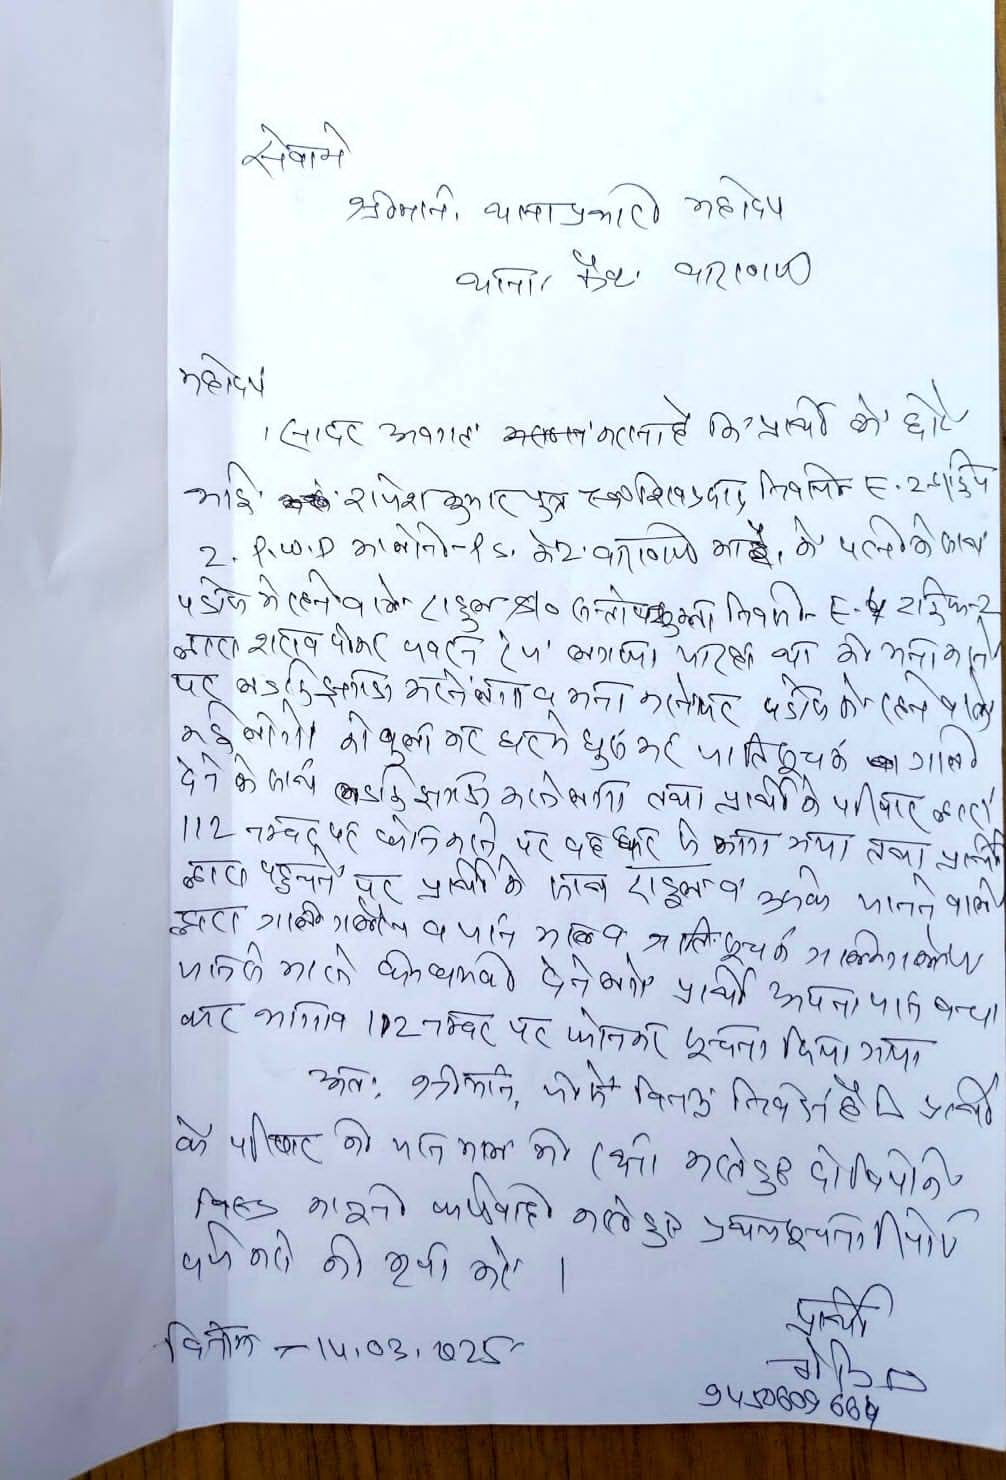 सेवामे
श्रीमान, थानाप्रभारी महोदय
थाना, कैंट वाराणसी
महोदय
सादर अवगत कराना है कि प्रार्थी के छोटे
भाई राजेश कुमार पुत्र स्व० शिवप्रसाद, निवासी E. 2
2. P.W.D कालोनी P.S. कैंट वाराणसी का है, के पत्नी के साथ
पड़ोस मे रहने वाले राहुल S/o सन्तोष निवासी E. टाईप-2
द्वारा शराब पीकर जा रहा था को मना करने
पर लड़ाई झगड़ा करने लगा व मना करने पर पड़ोस के रहने वाले
कई लोगो को बुला कर घरमे घुस कर जाति सूचक गाली
देने के साथ लड़ाई झगड़ा करने लगा तथा प्रार्थी के परिवार द्वारा
112 नम्बर पर फोन करने पर वह घर से भाग गया तथा प्रार्थी
द्वारा पहुचने पर प्रार्थी के साथ राहुल व उसके जानने वालो
द्वारा गाली गलौज व जाति सूचक गाली गलौज
जान से मारने की धमकी देने लगे प्रार्थी अपना जान बचा
कर भागा व 112 नम्बर पर फोन कर सूचना दिया गया
अतः श्रीमान, जी से निवेदन है कि प्रार्थी
के परिवार की जान माल की रक्षा करते हुए दोषियो के
विरूद्ध कानूनी कार्यवाही करते हुए प्रथम सूचना रिपोर्ट
दर्ज करने की कृपा करे।
प्रार्थी
दिनांक - 14.03.2025
9450609664